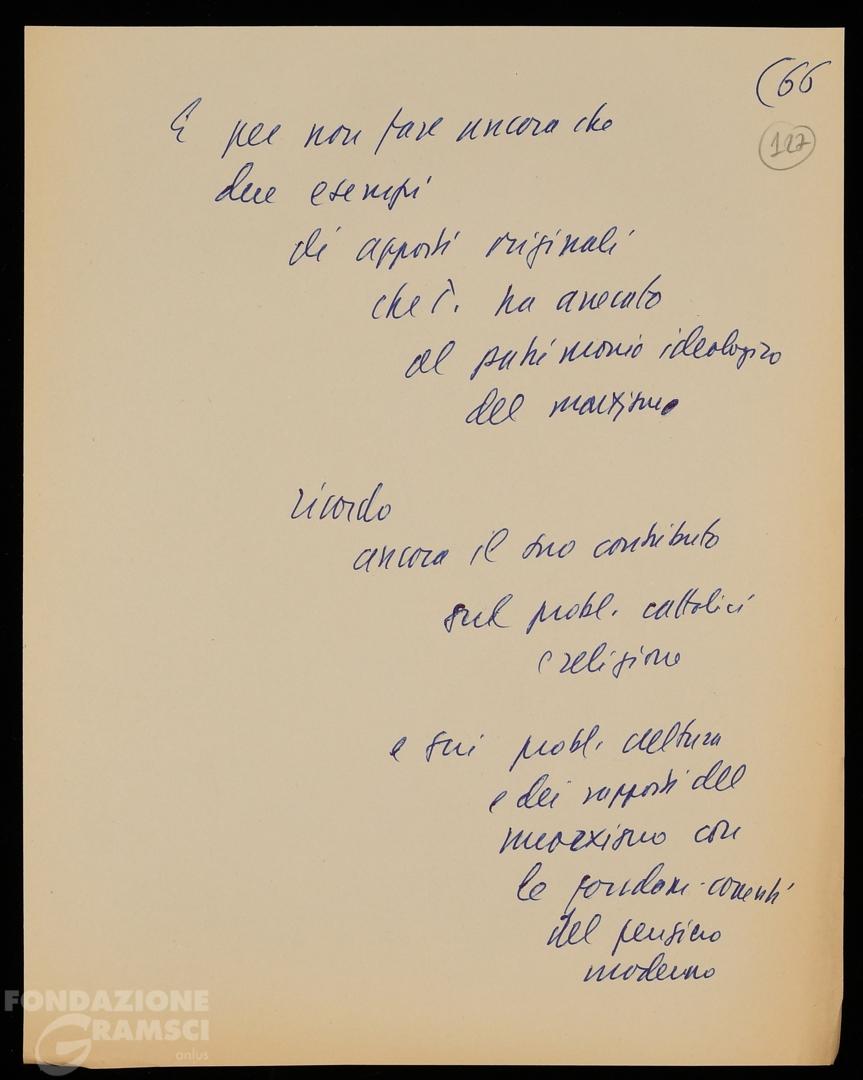 (66
127
E per non fare ancora che
due esempi
di apporti originali
che T. ha arrecato
al patrimonio ideologico
del marxismo
ricordo
ancora il suo contributo
sul probl. cattolici
e religione
e sui probl. cultura
e dei rapporti del
marxismo con
le fondam. correnti
del pensiero
moderno
FONDAZIONE
GRAMSCI
onlus